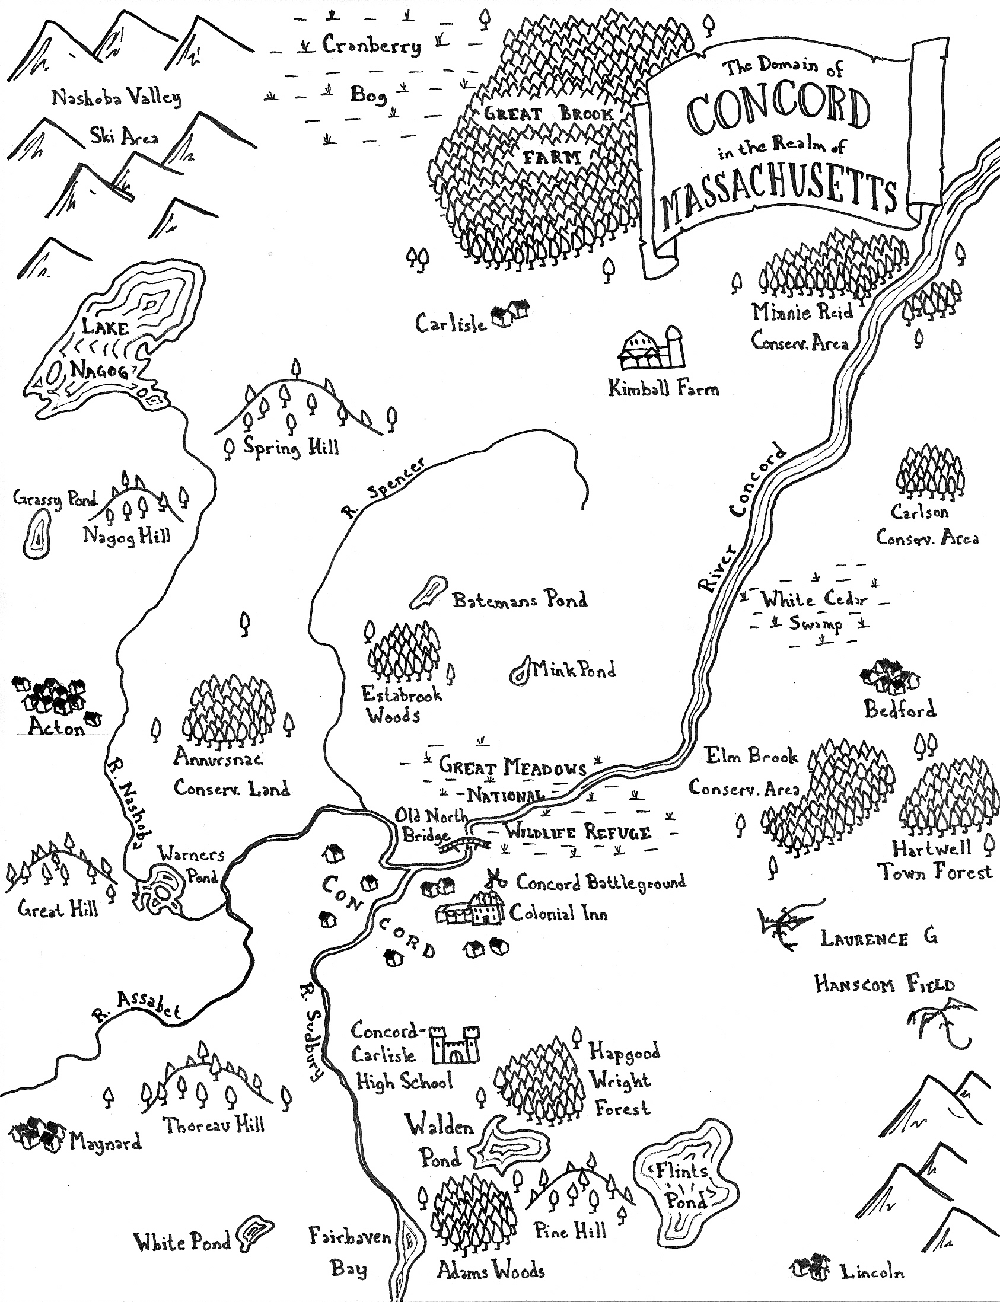 The Domain of
CONCORD
in the Realm of
MASSACHUSETTS
Nashoba Valley
Ski Area
Cranberry
Bog
GREAT BROOK
FARM
LAKE
NAGOG
Carlisle
Kimball Farm
Minnie Reid
Conserv. Area
Spring Hill
R. Spencer
River Concord
Grassy Pond
Nagog Hill
Carlson
Conserv. Area
Batemans Pond
White Cedar
Swamp
Mink Pond
Estabrook
Woods
Acton
Bedford
Annursnac
Conserv. Land
R. Nashoba
GREAT MEADOWS
NATIONAL
WILDLIFE REFUGE
Elm Brook
Conserv. Area
Old North
Bridge
Hartwell
Town Forest
Warners
Pond
Great Hill
CONCORD
Concord Battleground
Colonial Inn
LAURENCE G
HANSCOM FIELD
R. Assabet
R. Sudbury
Concord-
Carlisle
High School
Hapgood
Wright
Forest
Thoreau Hill
Maynard
Walden
Pond
Flints
Pond
Pine Hill
White Pond
Fairhaven
Bay
Adams Woods
Lincoln